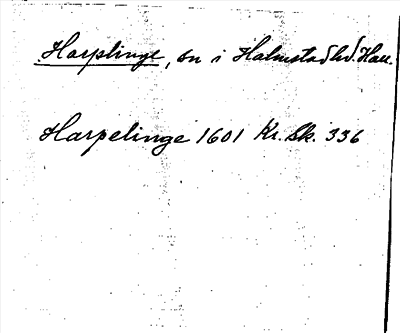 Harplinge, sn i Halmstad hd. Hall.
Harpelinge 1601 Kr. Sk. 336